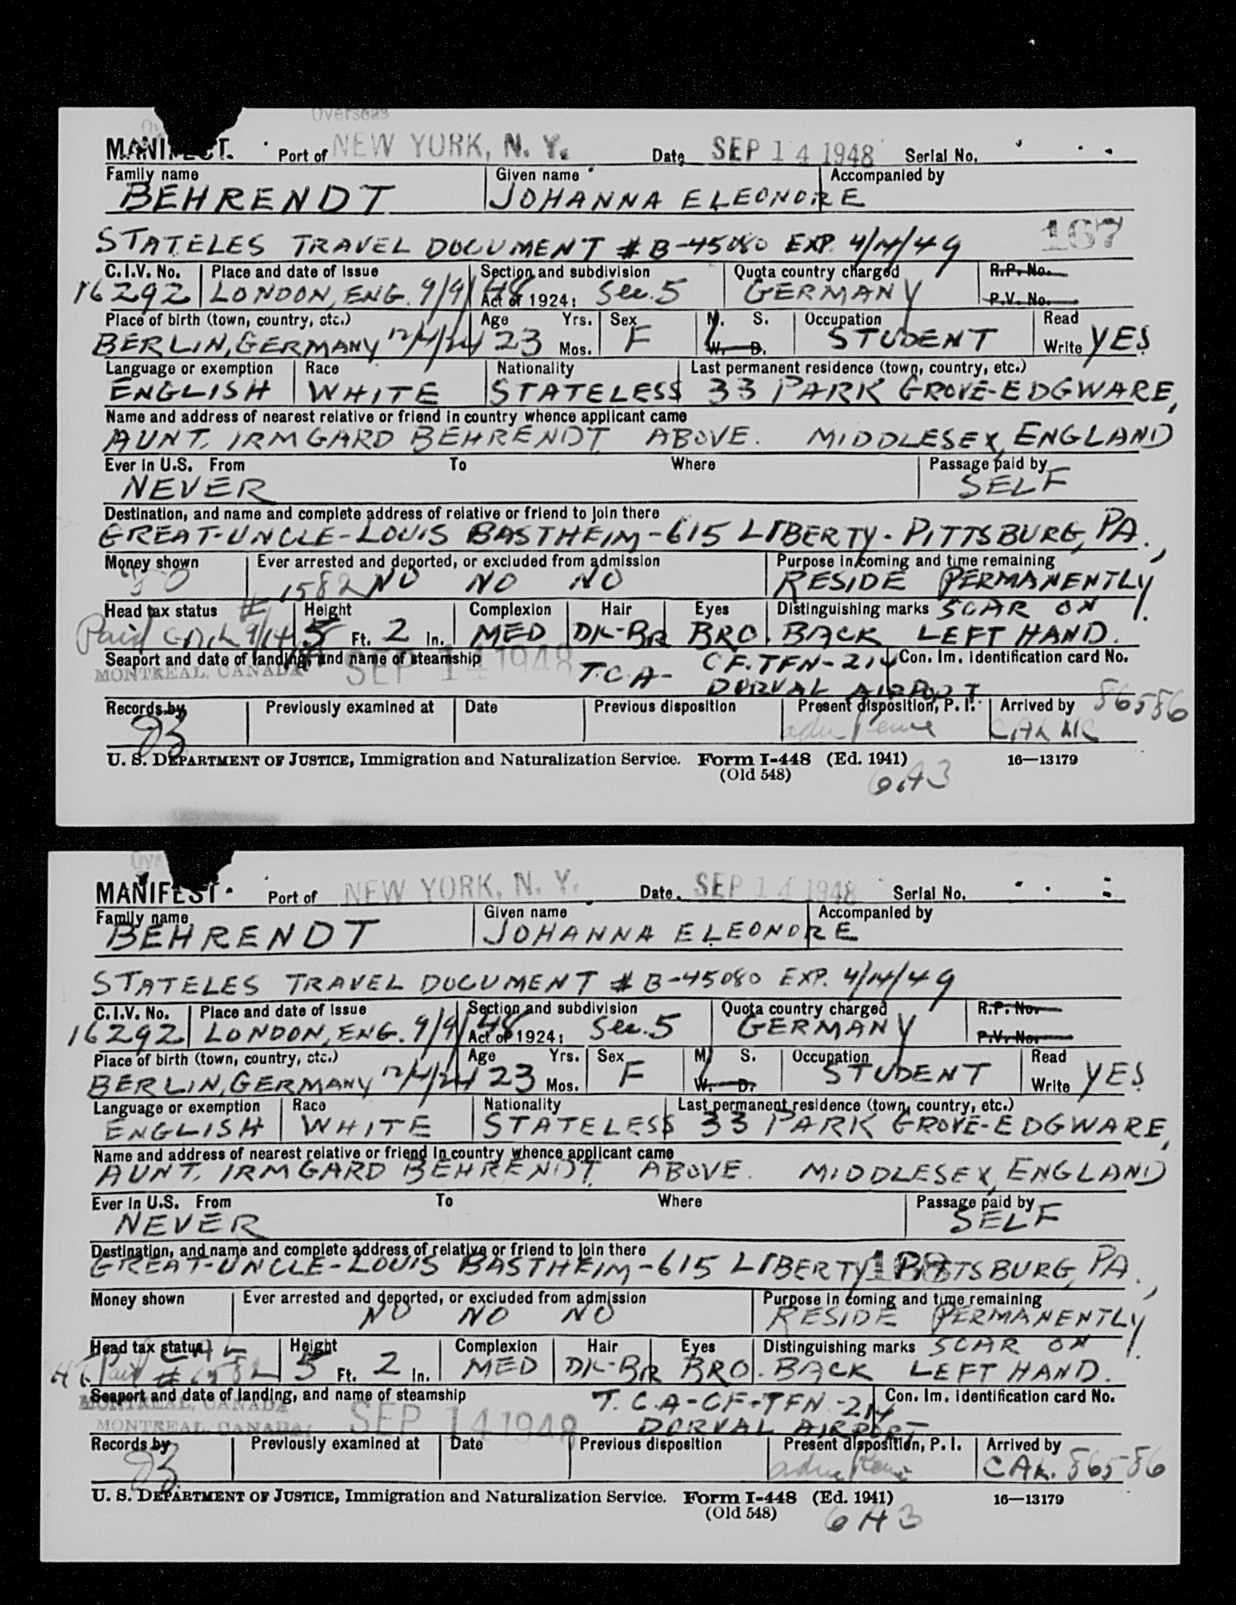 Overseas
MANIFEST. Port of NEW YORK, N. Y. Date SEP 14 1948 Serial No.
Family name Given name Accompanied by
BEHRENDT JOHANNA ELEONORE
STATELES TRAVEL DOCUMENT # B-45080 EXP. 4/14/49 167
C.I.V. No. Place and date of issue Section and subdivision Quota country charged R.P. No.
16292 LONDON, ENG. 9/9/48 Act of 1924: Sec. 5 GERMANY P.V. No.
Place of birth (town, country, etc.) Age Yrs. Sex M. S. Occupation Read
BERLIN, GERMANY 12/4/24 23 Mos. F W. D. STUDENT Write YES
Language or exemption Race Nationality Last permanent residence (town, country, etc.)
ENGLISH WHITE STATELESS 33 PARK GROVE-EDGWARE,
Name and address of nearest relative or friend in country whence applicant came
AUNT, IRMGARD BEHRENDT, ABOVE. MIDDLESEX, ENGLAND
Ever in U.S. From To Where Passage paid by
NEVER SELF
Destination, and name and complete address of relative or friend to join there
GREAT-UNCLE-LOUIS BASTHEIM-615 LIBERTY-PITTSBURG, PA.,
Money shown Ever arrested and deported, or excluded from admission Purpose in coming and time remaining
50 NO NO NO RESIDE PERMANENTLY
Head tax status # 1582 Height Complexion Hair Eyes Distinguishing marks SCAR ON
Paid 9/14 5 Ft. 2 In. MED DK-BR BRO. BACK LEFT HAND.
Seaport and date of landing, and name of steamship T.C.A- CF.TFN-214 Con. Im. Identification card No.
MONTREAL, CANADA SEP 14 1948 DORVAL AIRPORT
Records by Previously examined at Date Previous disposition Present disposition, P. I. Arrived by 86586
U. S. DEPARTMENT OF JUSTICE, Immigration and Naturalization Service. Form I-448 (Ed. 1941) 16—13179
(Old 548) 6A3
MANIFEST. Port of NEW YORK, N. Y. Date SEP 14 1948 Serial No.
Family name Given name Accompanied by
BEHRENDT JOHANNA ELEONORE
STATELES TRAVEL DOCUMENT # B-45080 EXP. 4/14/49
C.I.V. No. Place and date of issue Section and subdivision Quota country charged R.P. No.
16292 LONDON, ENG. 9/9/48 Act of 1924: Sec. 5 GERMANY P.V. No.
Place of birth (town, country, etc.) Age Yrs. Sex M. S. Occupation Read
BERLIN, GERMANY 12/4/24 23 Mos. F W. D. STUDENT Write YES
Language or exemption Race Nationality Last permanent residence (town, country, etc.)
ENGLISH WHITE STATELESS 33 PARK GROVE-EDGWARE,
Name and address of nearest relative or friend in country whence applicant came
AUNT, IRMGARD BEHRENDT, ABOVE. MIDDLESEX, ENGLAND
Ever in U.S. From To Where Passage paid by
NEVER SELF
Destination, and name and complete address of relative or friend to join there
GREAT-UNCLE-LOUIS BASTHEIM-615 LIBERTY PITTSBURG, PA.,
Money shown Ever arrested and deported, or excluded from admission Purpose in coming and time remaining
NO NO NO RESIDE PERMANENTLY
Head tax status Height Complexion Hair Eyes Distinguishing marks SCAR ON
5 Ft. 2 In. MED DK-BR BRO. BACK LEFT HAND.
Seaport and date of landing, and name of steamship T.C.A-CF-TFN-214 Con. Im. Identification card No.
MONTREAL, CANADA
MONTREAL, CANADA SEP 14 1948 DORVAL AIRPORT
Records by Previously examined at Date Previous disposition Present disposition, P. I. Arrived by
CAR. 86586
U. S. DEPARTMENT OF JUSTICE, Immigration and Naturalization Service. Form I-448 (Ed. 1941) 16—13179
(Old 548) 6A3